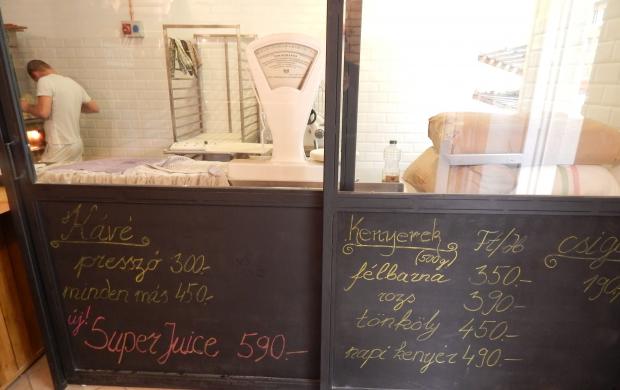 Kávé
presszó 300.-
minden más 450.-
új!
SuperJuice 590.-
Kenyerek Ft/db
(500g)
félbarna 350.-
rozs 390.-
tönköly 450.-
napi kenyér 490.-
csig
190